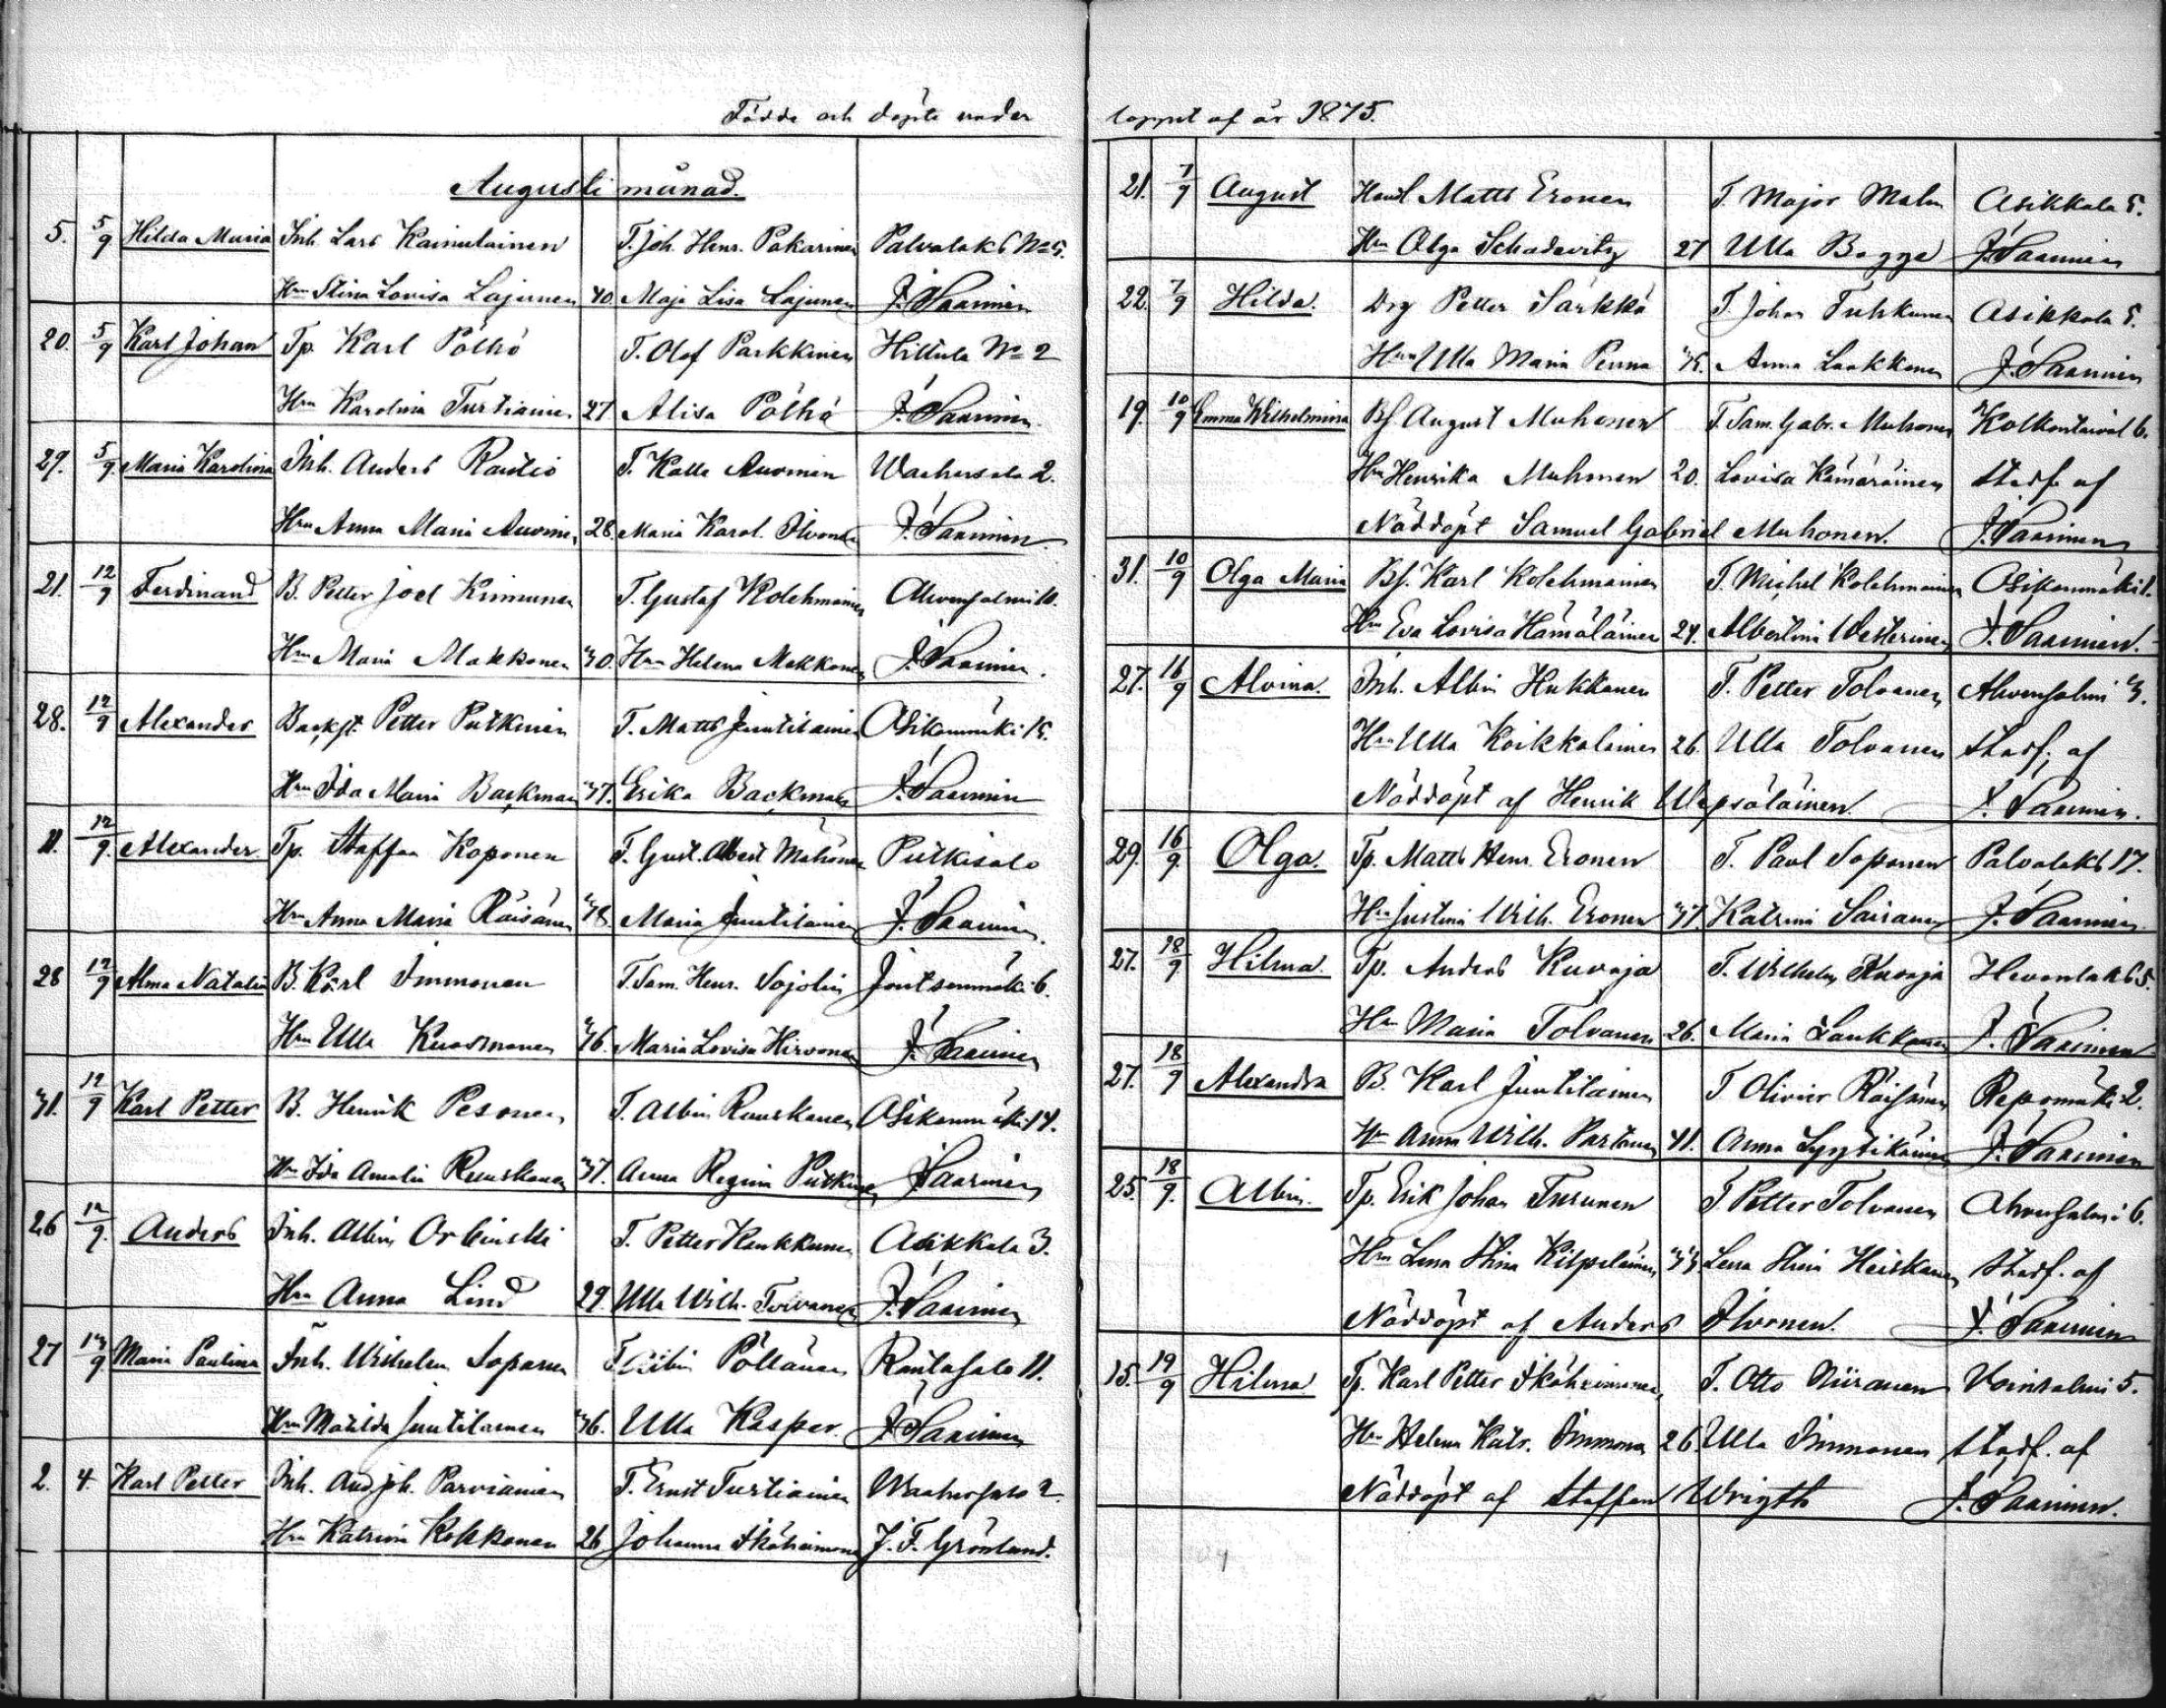 Födde och döpte under
Augusti månad.
5. 5/9 Hilda Maria Inh. Lars Kainulainen T. Joh. Henr. Pakarinen Palvalaks No 5.
Hru Stina Lovisa Lajunen 40. Maja Lisa Lajunen J. Saarinen
20. 5/9 Karl Johan Tp. Karl Pölhö T. Olof Parkkinen Hillula No 2
Hru Karolina Turtiainen 27 Alisa Pölhö J. Saarinen
29. 5/9 Maria Karolina Inh. Anders Rautio T. Kalle Auvinen Waahersalo 2.
Hru Anna Maria Auvinen 28. Maria Karol. Ihvonen J. Saarinen
21. 12/9 Ferdinand B. Petter Joel Kinnunen T. Gustaf Kolehmainen Ahvensalmi 10.
Hru Maria Makkonen 30. Hru Helena Makkonen J. Saarinen.
28. 12/9 Alexander Backst. Petter Putkinen T. Matts Juutilainen Asikanmäki 15.
Hru Ida Maria Backman 37. Erika Backman J. Saarinen
11. 12/9. Alexander Tp. Staffan Koponen T. Gust. Albert Muhonen Putkisalo
Hru Anna Maria Räisänen 38. Maria Juutilainen J. Saarinen.
28 12/9 Alma Natalia B. Karl Immonen T. Sam. Henr. Sojolin Joutsenmäki 6.
Hru Ulla Kuosmanen 36. Maria Lovisa Hirvonen J. Saarinen
31. 12/9 Karl Petter B. Henrik Pesonen T. Albin Ruuskanen Asikanmäki 14.
Hru Ida Amalia Ruuskanen 37. Anna Regina Putkinen J. Saarinen
26 12/9. Anders Inh. Albin Orlinski T. Petter Haukkunen Asikkala 3.
Hru Anna Lind 29. Ulla Wilh. Toivanen J. Saarinen
27 13/9. Maria Paulina Inh. Wilhelm Soponen T. Albin Pöllänen Rantasalo 11.
Hru Matilda Juutilainen 36. Ulla Kasper. J. Saarinen
2. 4. Karl Petter Inh. And. Joh. Parviainen T. Ernst Turtiainen Waahersalo 2.
Hru Katrina Kokkonen 26 Johanna Ikäheimonen J. F. Grönlund.
loppet af år 1875.
21. 7/9 August Handl Matts Eronen T. Major Malm Asikkala 5.
Hru Olga Schadevitz 27 Ulla Bogge J. Saarinen
22. 7/9 Hilda. Drg Petter Särkkä T. Johan Tuhkunen Asikkala 5.
Hru Ulla Maria Penna 35. Anna Laakkonen J. Saarinen
19. 10/9 Emma Wilhelmina Bf. August Muhonen T. Sam. Gabr. Muhonen Kolkontaival 6.
Hru Henrika Muhonen 20. Lovisa Kämäräinen stadf. af
Nöddöpt Samuel Gabriel Muhonen. J. Saarinen
31. 10/9 Olga Maria Bf. Karl Kolehmainen T. Michel Kolehmainen Asikanmäki 1.
Hru Eva Lovisa Hämäläinen 24. Albertina Westerinen J. Saarinen.
27. 16/9 Alvina. Inh. Albin Hukkanen T. Petter Tolvanen Ahvensalmi 3.
Hru Ulla Koikkalainen 26. Ulla Tolvanen stadf. af
Nöddöpt af Henrik Wepsäläinen. J. Saarinen.
29. 16/9. Olga. Tp. Matts Henr. Eronen T. Paul Soponen Palvalaks 17.
Hru Justina Wilh. Eronen 37. Katrina Sairanen J. Saarinen.
27. 18/9 Hilma. Tp. Anders Kuvaja T. Wilhelm Kuvaja Hevonlaks 5.
Hru Maria Tolvanen 26. Maria Laukkanen J. Saarinen
27. 18/9 Alexandra B. Karl Juutilainen T Olivier Räisänen Repomäki 2.
Hru Anna Wilh. Partanen 41. Anna Lyytikäinen J. Saarinen
25. 18/9. Albin. Tp. Erik Johan Turunen T Petter Tolvanen Ahvensalmi 6.
Hru Lena Stina Kilpeläinen 33 Lena Stina Heiskanen stadf. af
Nöddöpt af Anders Ihvonen. J. Saarinen
15. 19/9 Hilma Tp. Karl Petter Ikäheimonen T. Otto Niiranen Voinsalmi 5.
Hru Helena Katr. Immonen 26. Ulla Immonen stadf. af
Nöddöpt af Staffan Wrigth J. Saarinen.